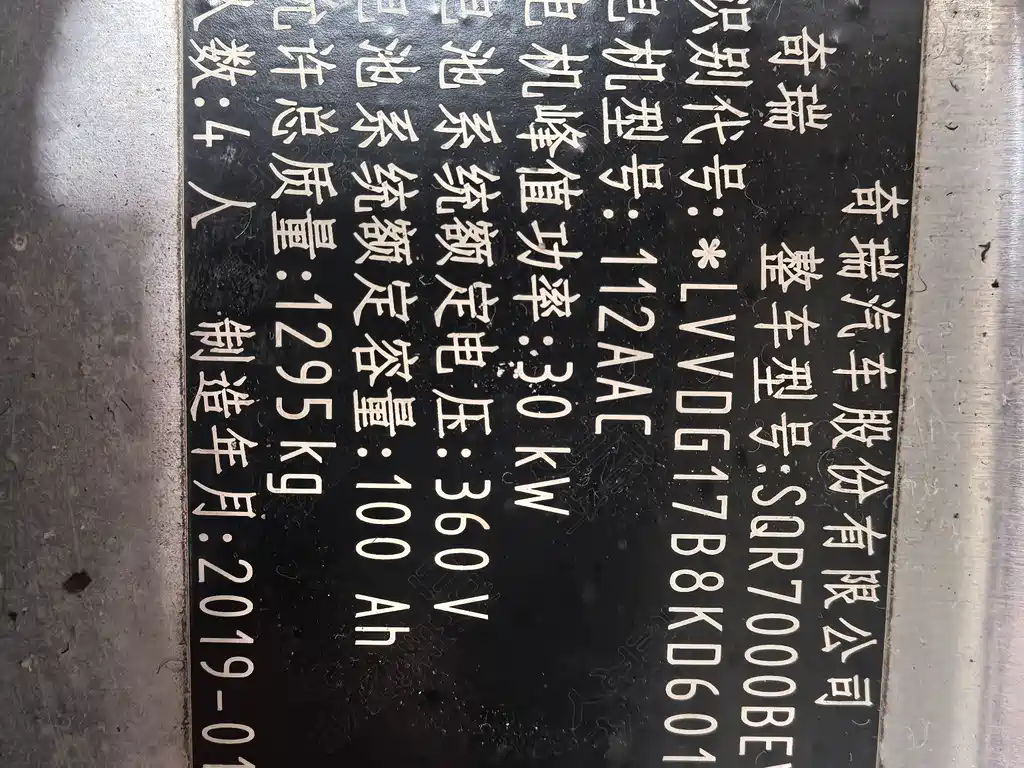 奇瑞汽车股份有限公司
奇瑞 整车型号:SQR7000BEV
识别代号:*LVVDG17B8KD601
电机型号:112AAC
电机峰值功率:30kW
电池系统额定电压:360V
电池系统额定容量:100 Ah
允许总质量:1295kg
人数:4人 制造年月:2019-01